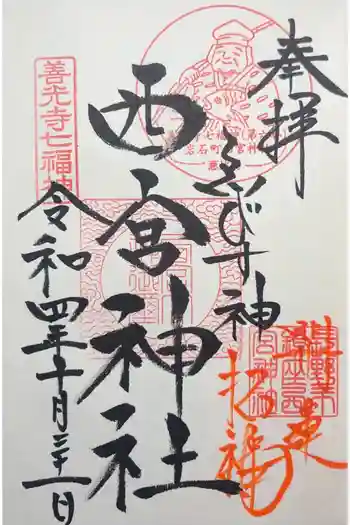 奉拝
ゑびす神
西宮神社
令和四年十月三十一日
善光寺七福神
岩石町
招福